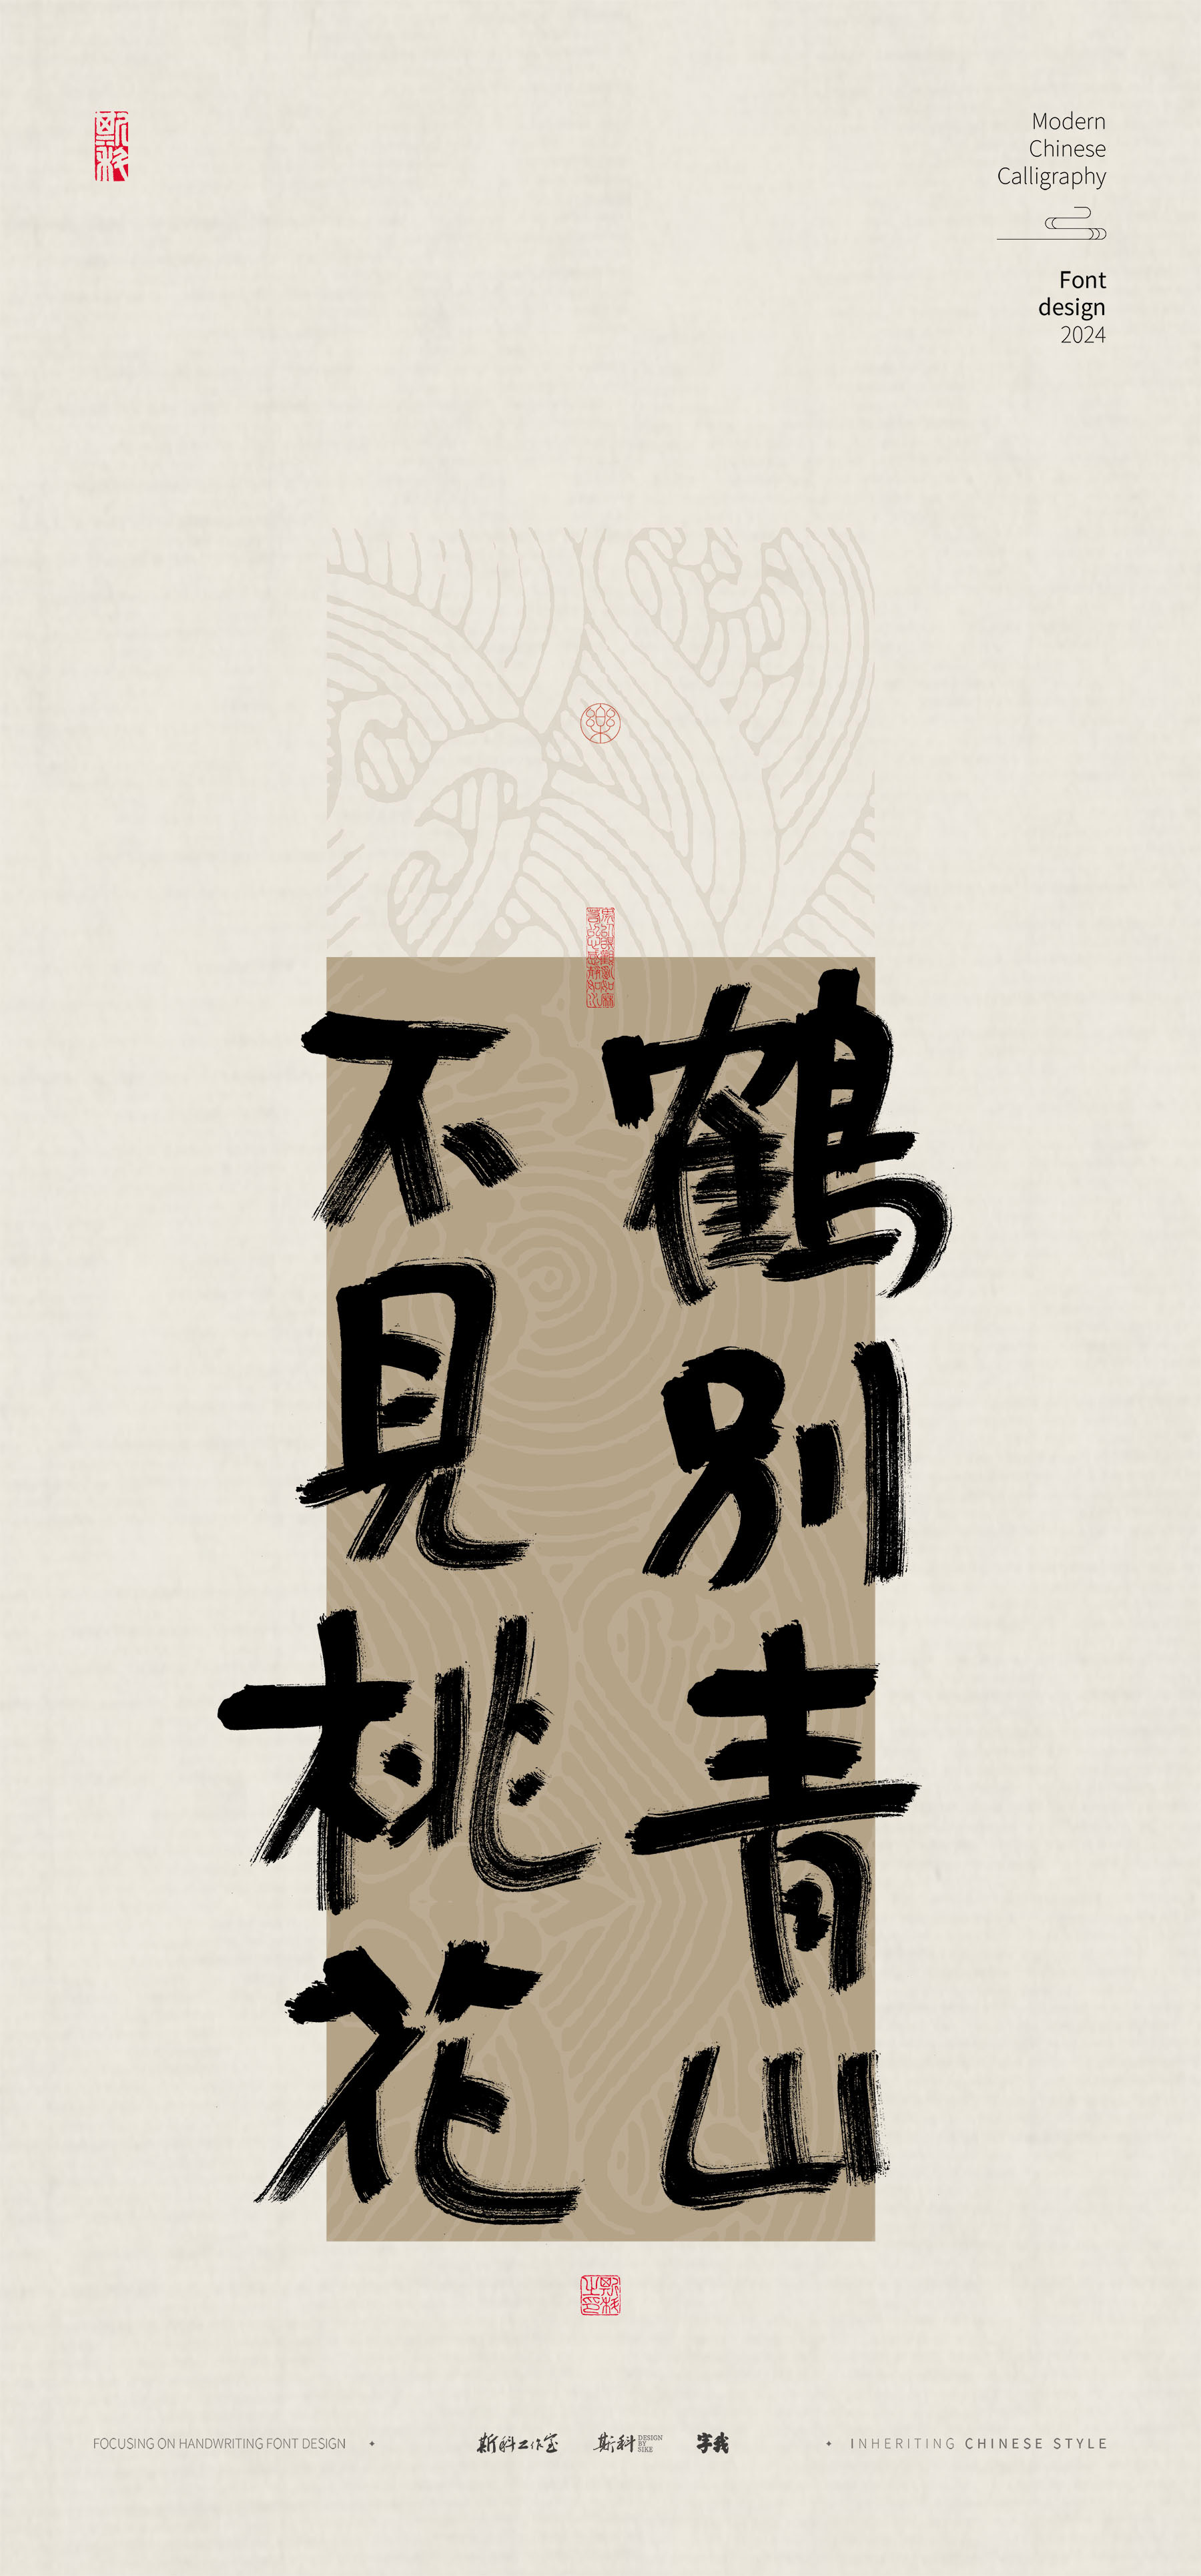 斯科
Modern
Chinese
Calligraphy
Font
design
2024
鹤别青山
不見桃花
斯科之印
FOCUSING ON HANDWRITING FONT DESIGN
斯科工作室
斯科
DESIGN
BY
SIKE
字我
INHERITING CHINESE STYLE